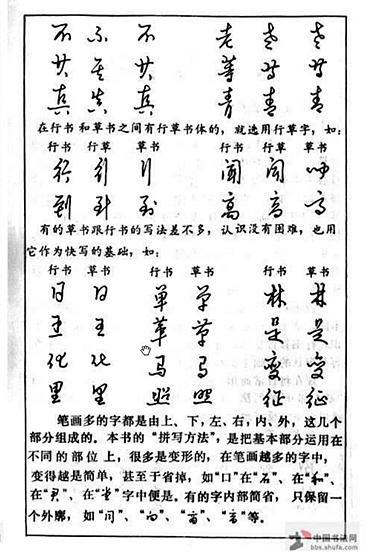 不 不 不 老 老 老
共 共 共 等 等 等
真 真 真 青 青 青
在行书和草书之间有行草书体的，就选用行草字，如：
行书 行草 草书 行书 行草 草书
行 行 行 闻 闻 闻
到 到 到 高 高 高
有的草书跟行书的写法差不多，认识没有困难，也用
它作为快写的基础，如：
行书 草书 行书 草书 行书 草书
日 日 单 单 林 林
王 王 草 草 是 是
化 化 马 马 变 变
里 里 照 照 征 征
笔画多的字都是由上、下，左、右，内、外，这几个
部分组成的。本书的“拼写方法”，是把基本部分运用在
不同的部位上，很多是变形的，在笔画越多的字中，
变得越是简单，甚至于省掉，如“口”在“石”、在“和”、
在“君”、在“堂”字中便是。有的字内部简省，只保留一
个外廓，如“门”、“向”、等。
中国书法网
bbs.shufa.com